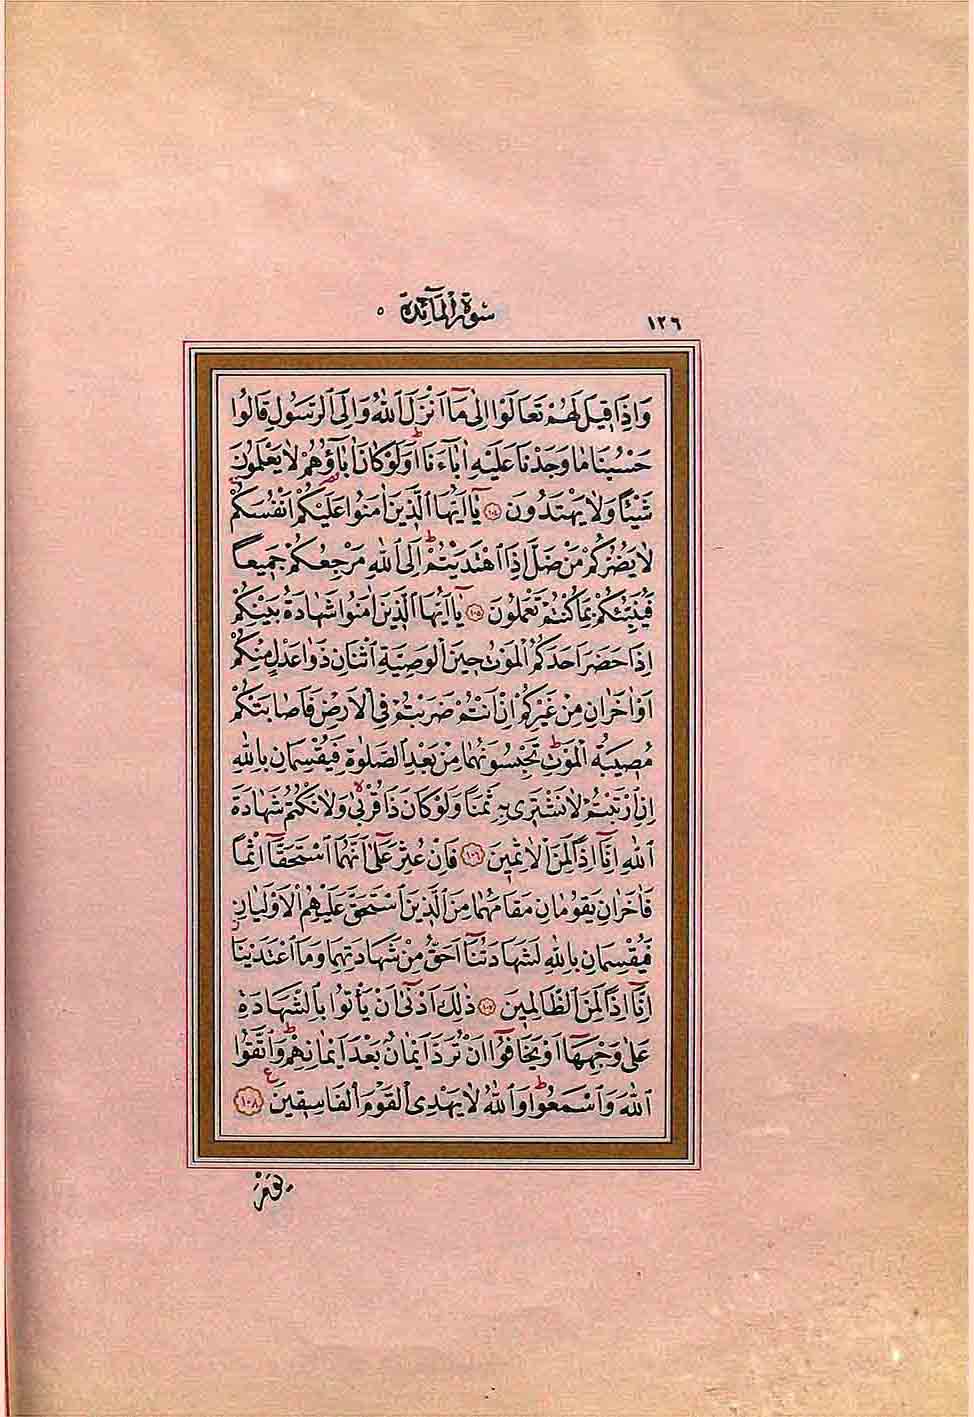 ١٢٦ سُورَةُ الْمَآئِدَةِ ٥
وَاِذَا قِيلَ لَهُمْ تَعَالَوْا اِلٰى مَٓا اَنْزَلَ اللّٰهُ وَاِلَى الرَّسُولِ قَالُوا
حَسْبُنَا مَا وَجَدْنَا عَلَيْهِ اٰبَٓاءَنَاۜ اَوَلَوْ كَانَ اٰبَٓاؤُ۬هُمْ لَا يَعْلَمُونَ
شَيْـًٔا وَلَا يَهْتَدُونَ ﴿١٠٤﴾ يَٓا اَيُّهَا الَّذِينَ اٰمَنُوا عَلَيْكُمْ اَنْفُسَكُمْۚ
لَا يَضُرُّكُمْ مَنْ ضَلَّ اِذَا اهْتَدَيْتُمْۜ اِلَى اللّٰهِ مَرْجِعُكُمْ جَمِيعًا
فَيُنَبِّئُكُمْ بِمَا كُنْتُمْ تَعْمَلُونَ ﴿١٠٥﴾ يَٓا اَيُّهَا الَّذِينَ اٰمَنُوا شَهَادَةُ بَيْنِكُمْ
اِذَا حَضَرَ اَحَدَكُمُ الْمَوْتُ حِينَ الْوَصِيَّةِ اثْنَانِ ذَوَا عَدْلٍ مِنْكُمْ
اَوْ اٰخَرَانِ مِنْ غَيْرِكُمْ اِنْ اَنْتُمْ ضَرَبْتُمْ فِي الْاَرْضِ فَاَصَابَتْكُمْ
مُصِيبَةُ الْمَوْتِۜ تَحْبِسُونَهُمَا مِنْ بَعْدِ الصَّلٰوةِ فَيُقْسِمَانِ بِاللّٰهِ
اِنِ ارْتَبْتُمْ لَا نَشْتَرِي بِهِ ثَمَنًا وَلَوْ كَانَ ذَا قُرْبٰىۙ وَلَا نَكْتُمُ شَهَادَةَ
اللّٰهِ اِنَّٓا اِذًا لَمِنَ الْاٰثِمِينَ ﴿١٠٦﴾ فَاِنْ عُثِرَ عَلٰٓى اَنَّهُمَا اسْتَحَقَّٓا اِثْمًا
فَاٰخَرَانِ يَقُومَانِ مَقَامَهُمَا مِنَ الَّذِينَ اسْتَحَقَّ عَلَيْهِمُ الْاَوْلَيَانِ
فَيُقْسِمَانِ بِاللّٰهِ لَشَهَادَتُنَٓا اَحَقُّ مِنْ شَهَادَتِهِمَا وَمَا اعْتَدَيْنَاۘ
اِنَّٓا اِذًا لَمِنَ الظَّالِمِينَ ﴿١٠٧﴾ ذٰلِكَ اَدْنٰٓى اَنْ يَأْتُوا بِالشَّهَادَةِ
عَلٰى وَجْهِهَٓا اَوْ يَخَافُٓوا اَنْ تُرَدَّ اَيْمَانٌ بَعْدَ اَيْمَانِهِمْۜ وَاتَّقُوا
اللّٰهَ وَاسْمَعُواۜ وَاللّٰهُ لَا يَهْدِي الْقَوْمَ الْفَاسِقِينَ ﴿١٠٨﴾ ع